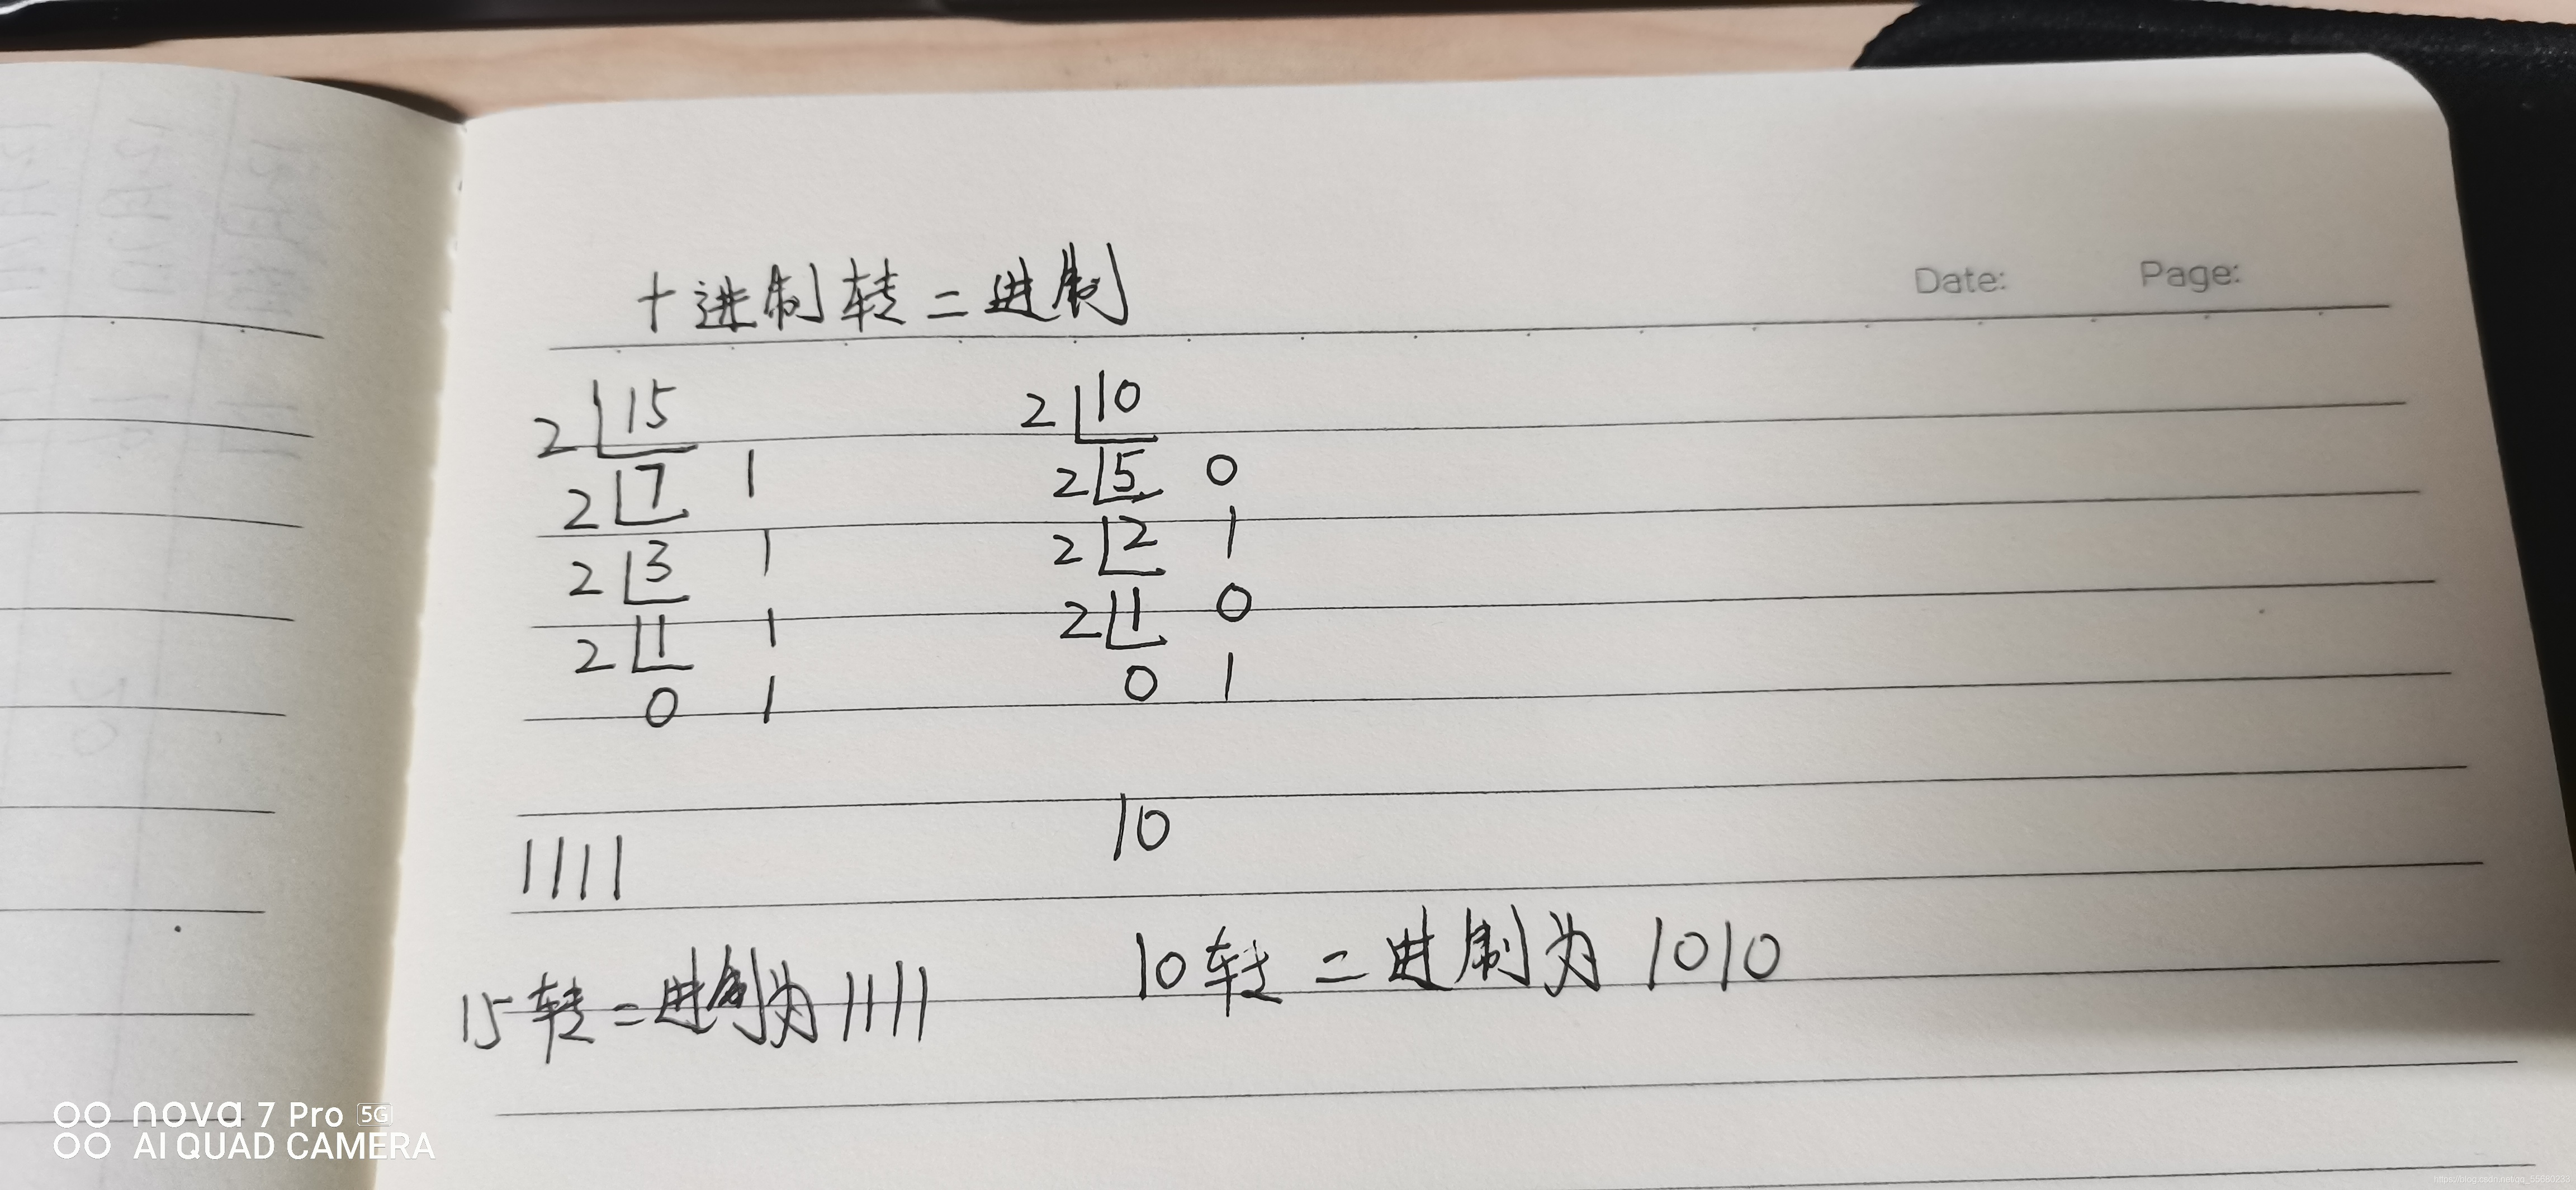 十进制转二进制
Date: Page:
2 15 2 10
2 7 1 2 5 0
2 3 1 2 2 1
2 1 1 2 1 0
0 1 0 1
1111 10
15转二进制为1111 10转二进制为 1010
nova 7 Pro 5G
AI QUAD CAMERA